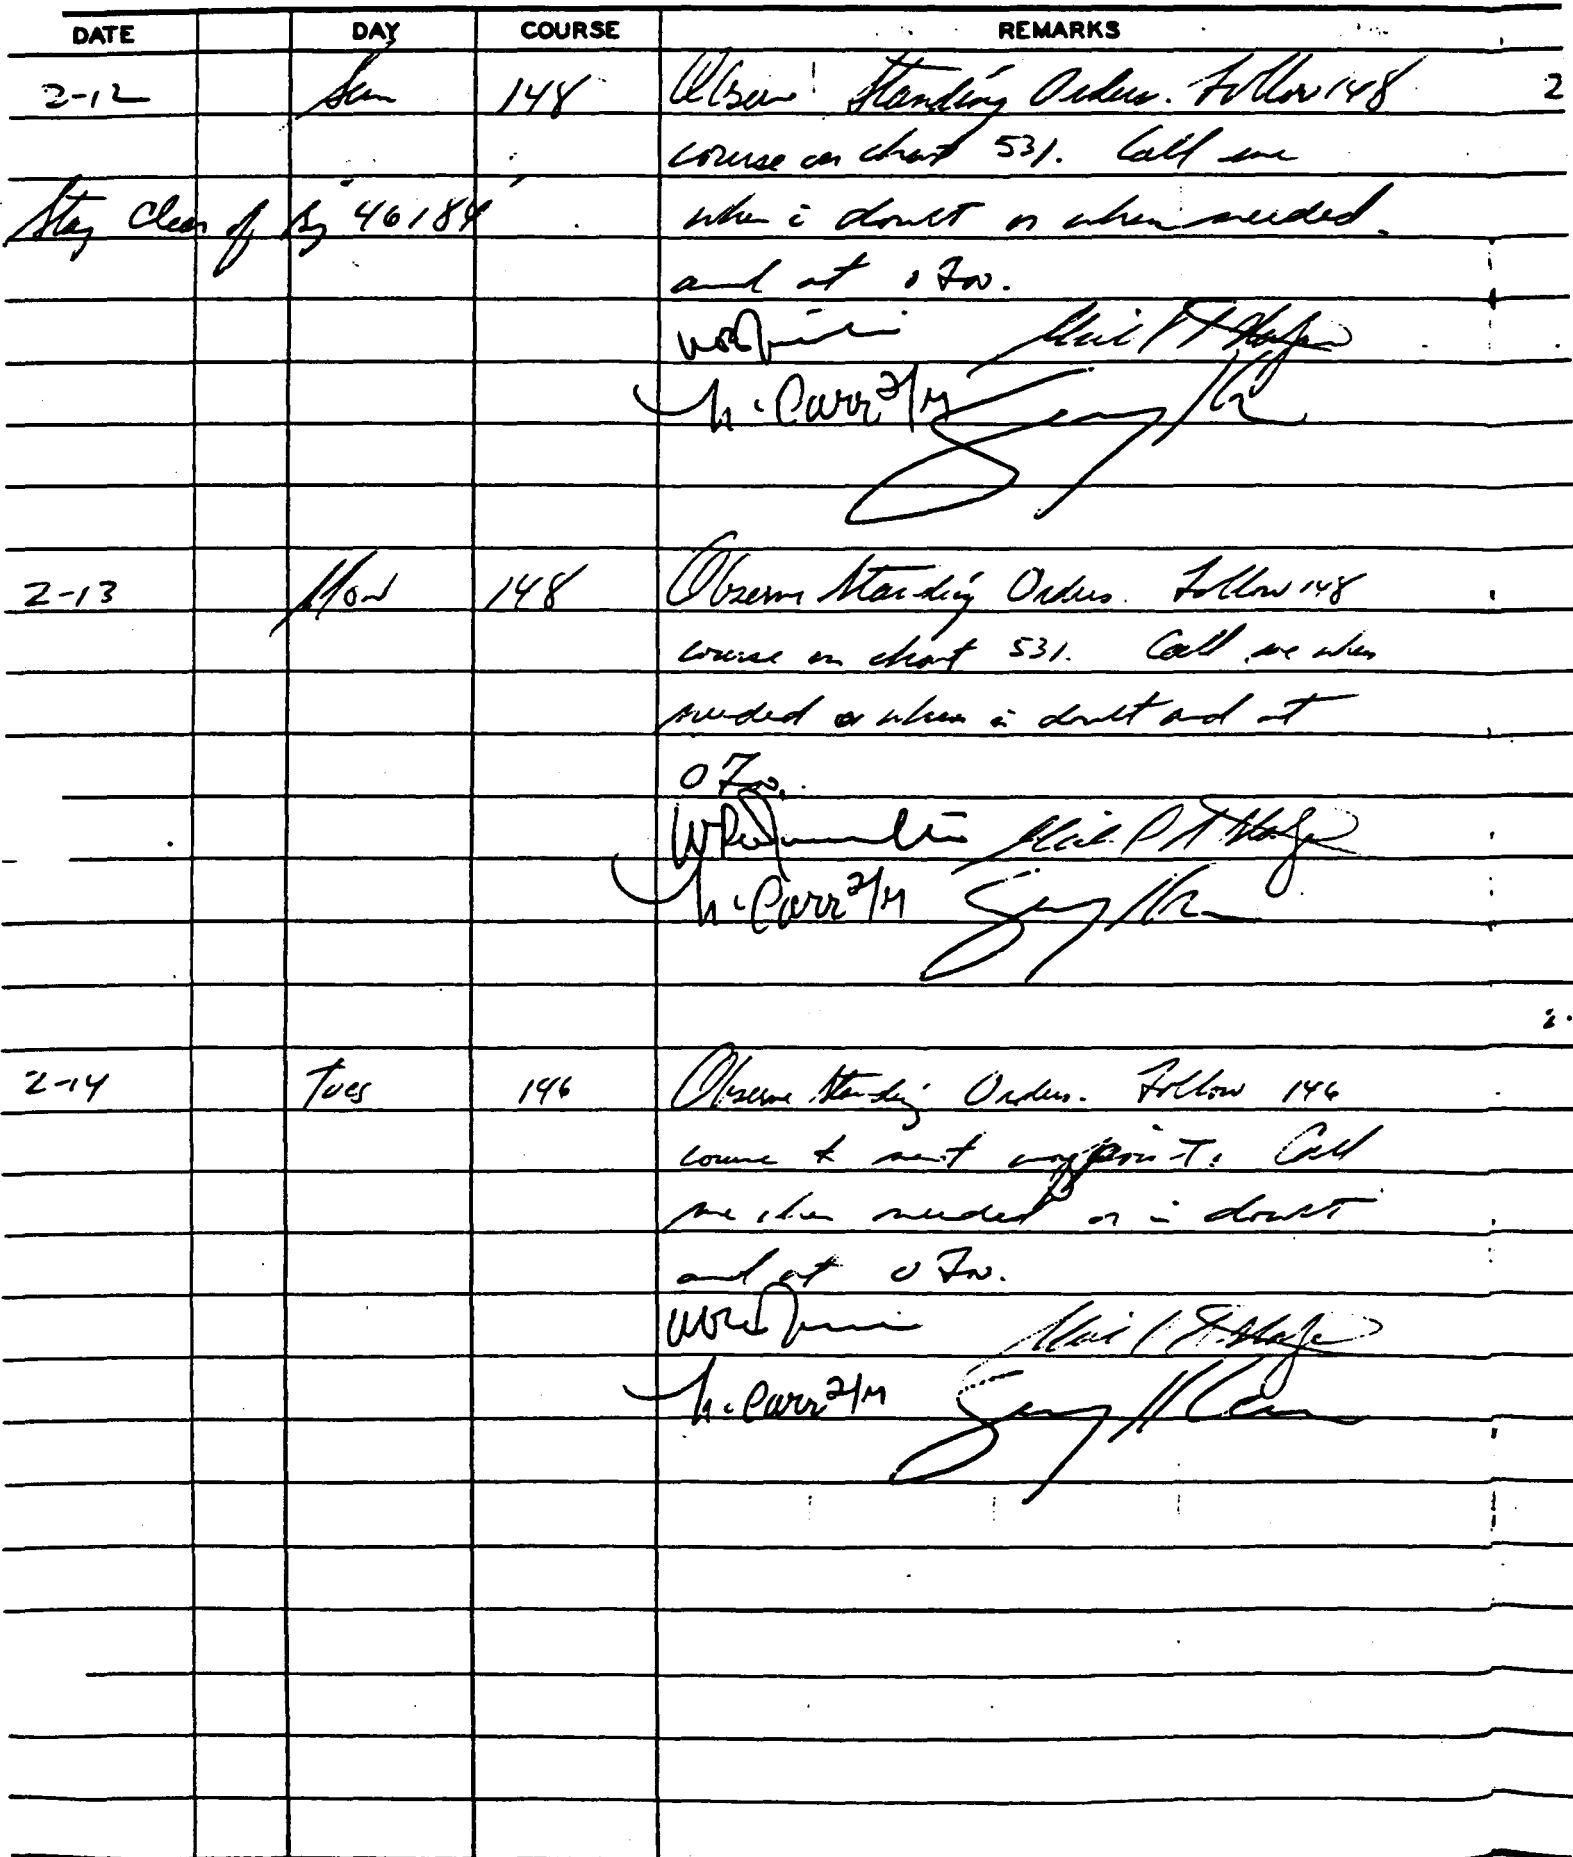 DATE DAY COURSE REMARKS
2-12 Sun 148 Observe Standing Orders. Follow 148 2
course on chart 531. Call me
Stay Clear of By "46184" when i doubt or when needed.
and at 0700.
h. Carr 2/M
2-13 Mon 148 Observe Standing Orders. Follow 148
course on chart 531. Call me when
needed or when in doubt and at
0700.
h. Carr 2/M
2-14 Tues 146 Observe Standing Orders. Follow 146
course to next waypoint. Call
me when needed or in doubt
and at 0700.
h. Carr 2/M